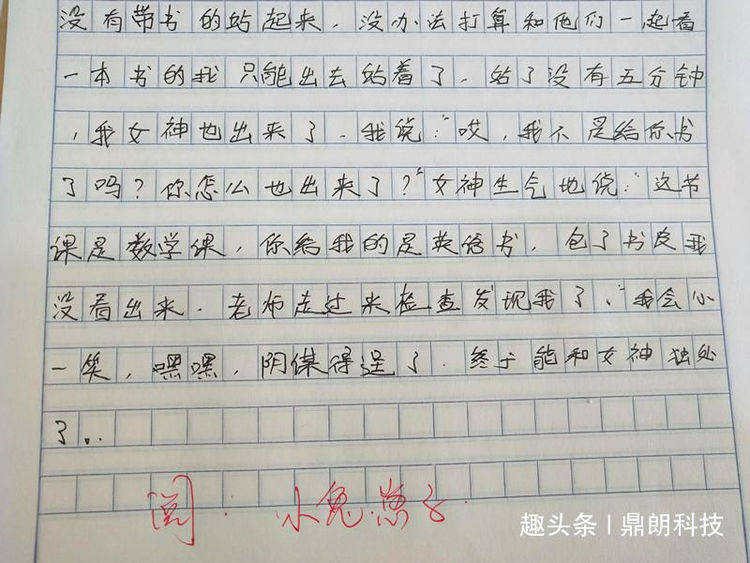 没有带书的站起来，没办法打算和他们一起看
一本书的我只能出去站着了。站了没有五分钟
，我女神也出来了、我说：“哎，我不是给你书
了吗？你怎么也出来了？”女神生气地说：“这节
课是数学课，你给我的是英语书，包了书皮我
没看出来．老师走过来检查发现我了、”我会心
一笑，嘿嘿，阴谋得逞了．终于能和女神独处
了。.
阅．小兔崽子．
趣头条 | 鼎朗科技